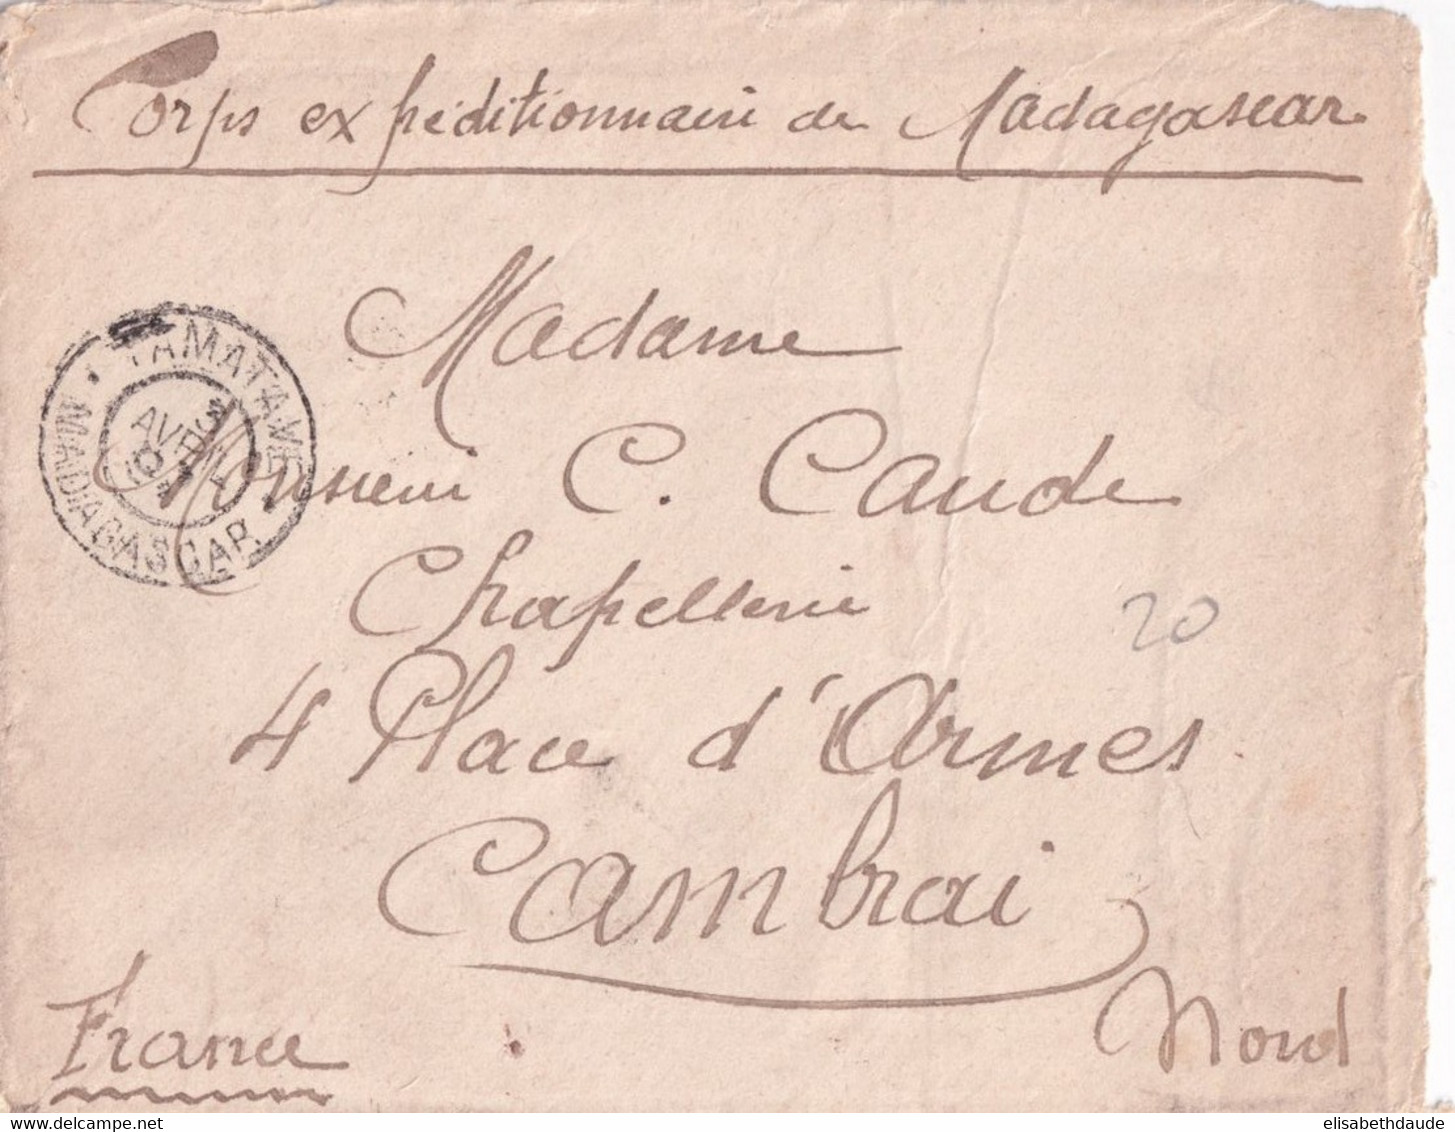 Corps expéditionnaire de Madagascar
Madame
TAMATAVE
MADAGASCAR
AVRIL
Monsieur C. Caude
Chapellerie
20
4 Place d'Armes
Cambrai
Nord
France
delcampe.net
elisabethdaude